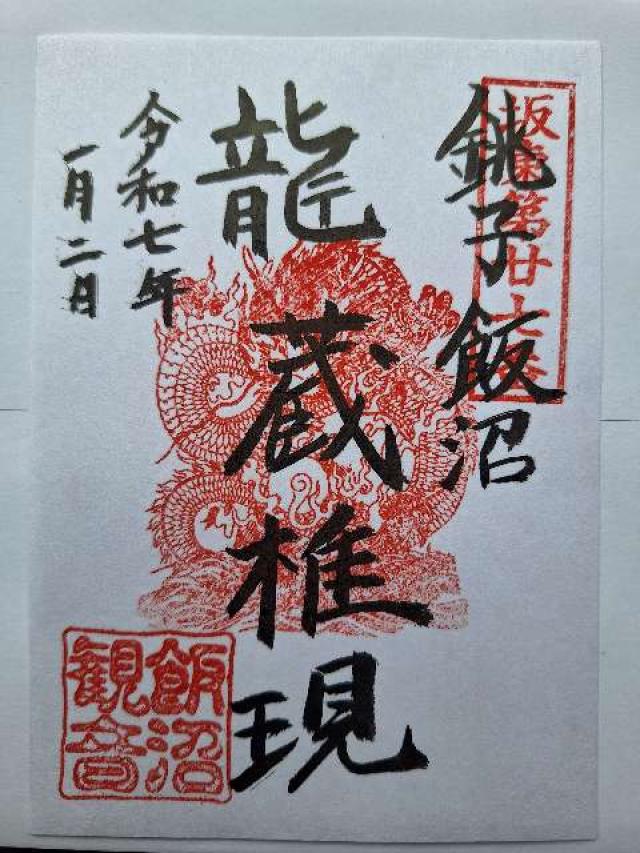 坂東第廿七番
銚子飯沼
龍蔵権現
令和七年
一月二日
飯沼
観音